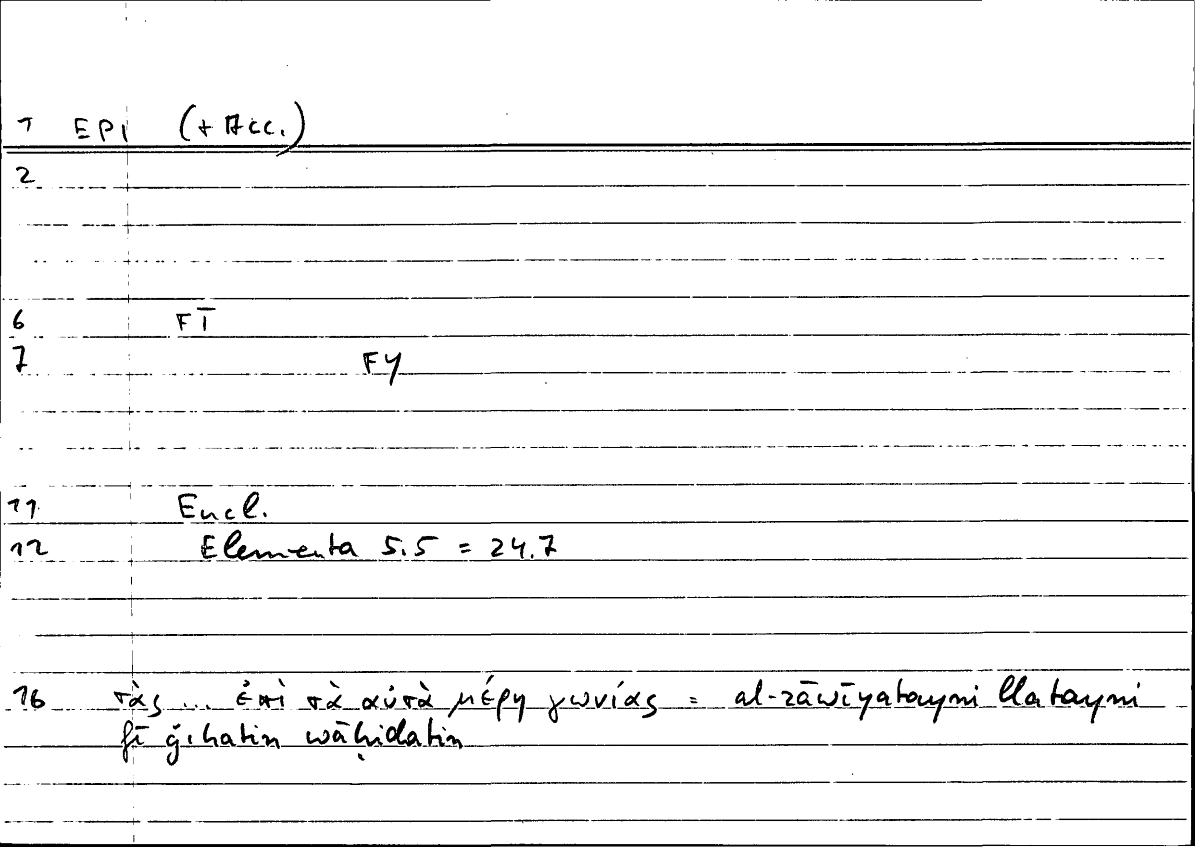 1 EPI (+ Acc.)
2
6 FĪ
7 FY
11 Eucl.
12 Elementa 5.5 = 24.7
16 τὰς ... ἐπὶ τὰ αὐτὰ μέρη γωνίας = al-zāwīyatayni llatayni
fī ǧihatin wāḥidatin